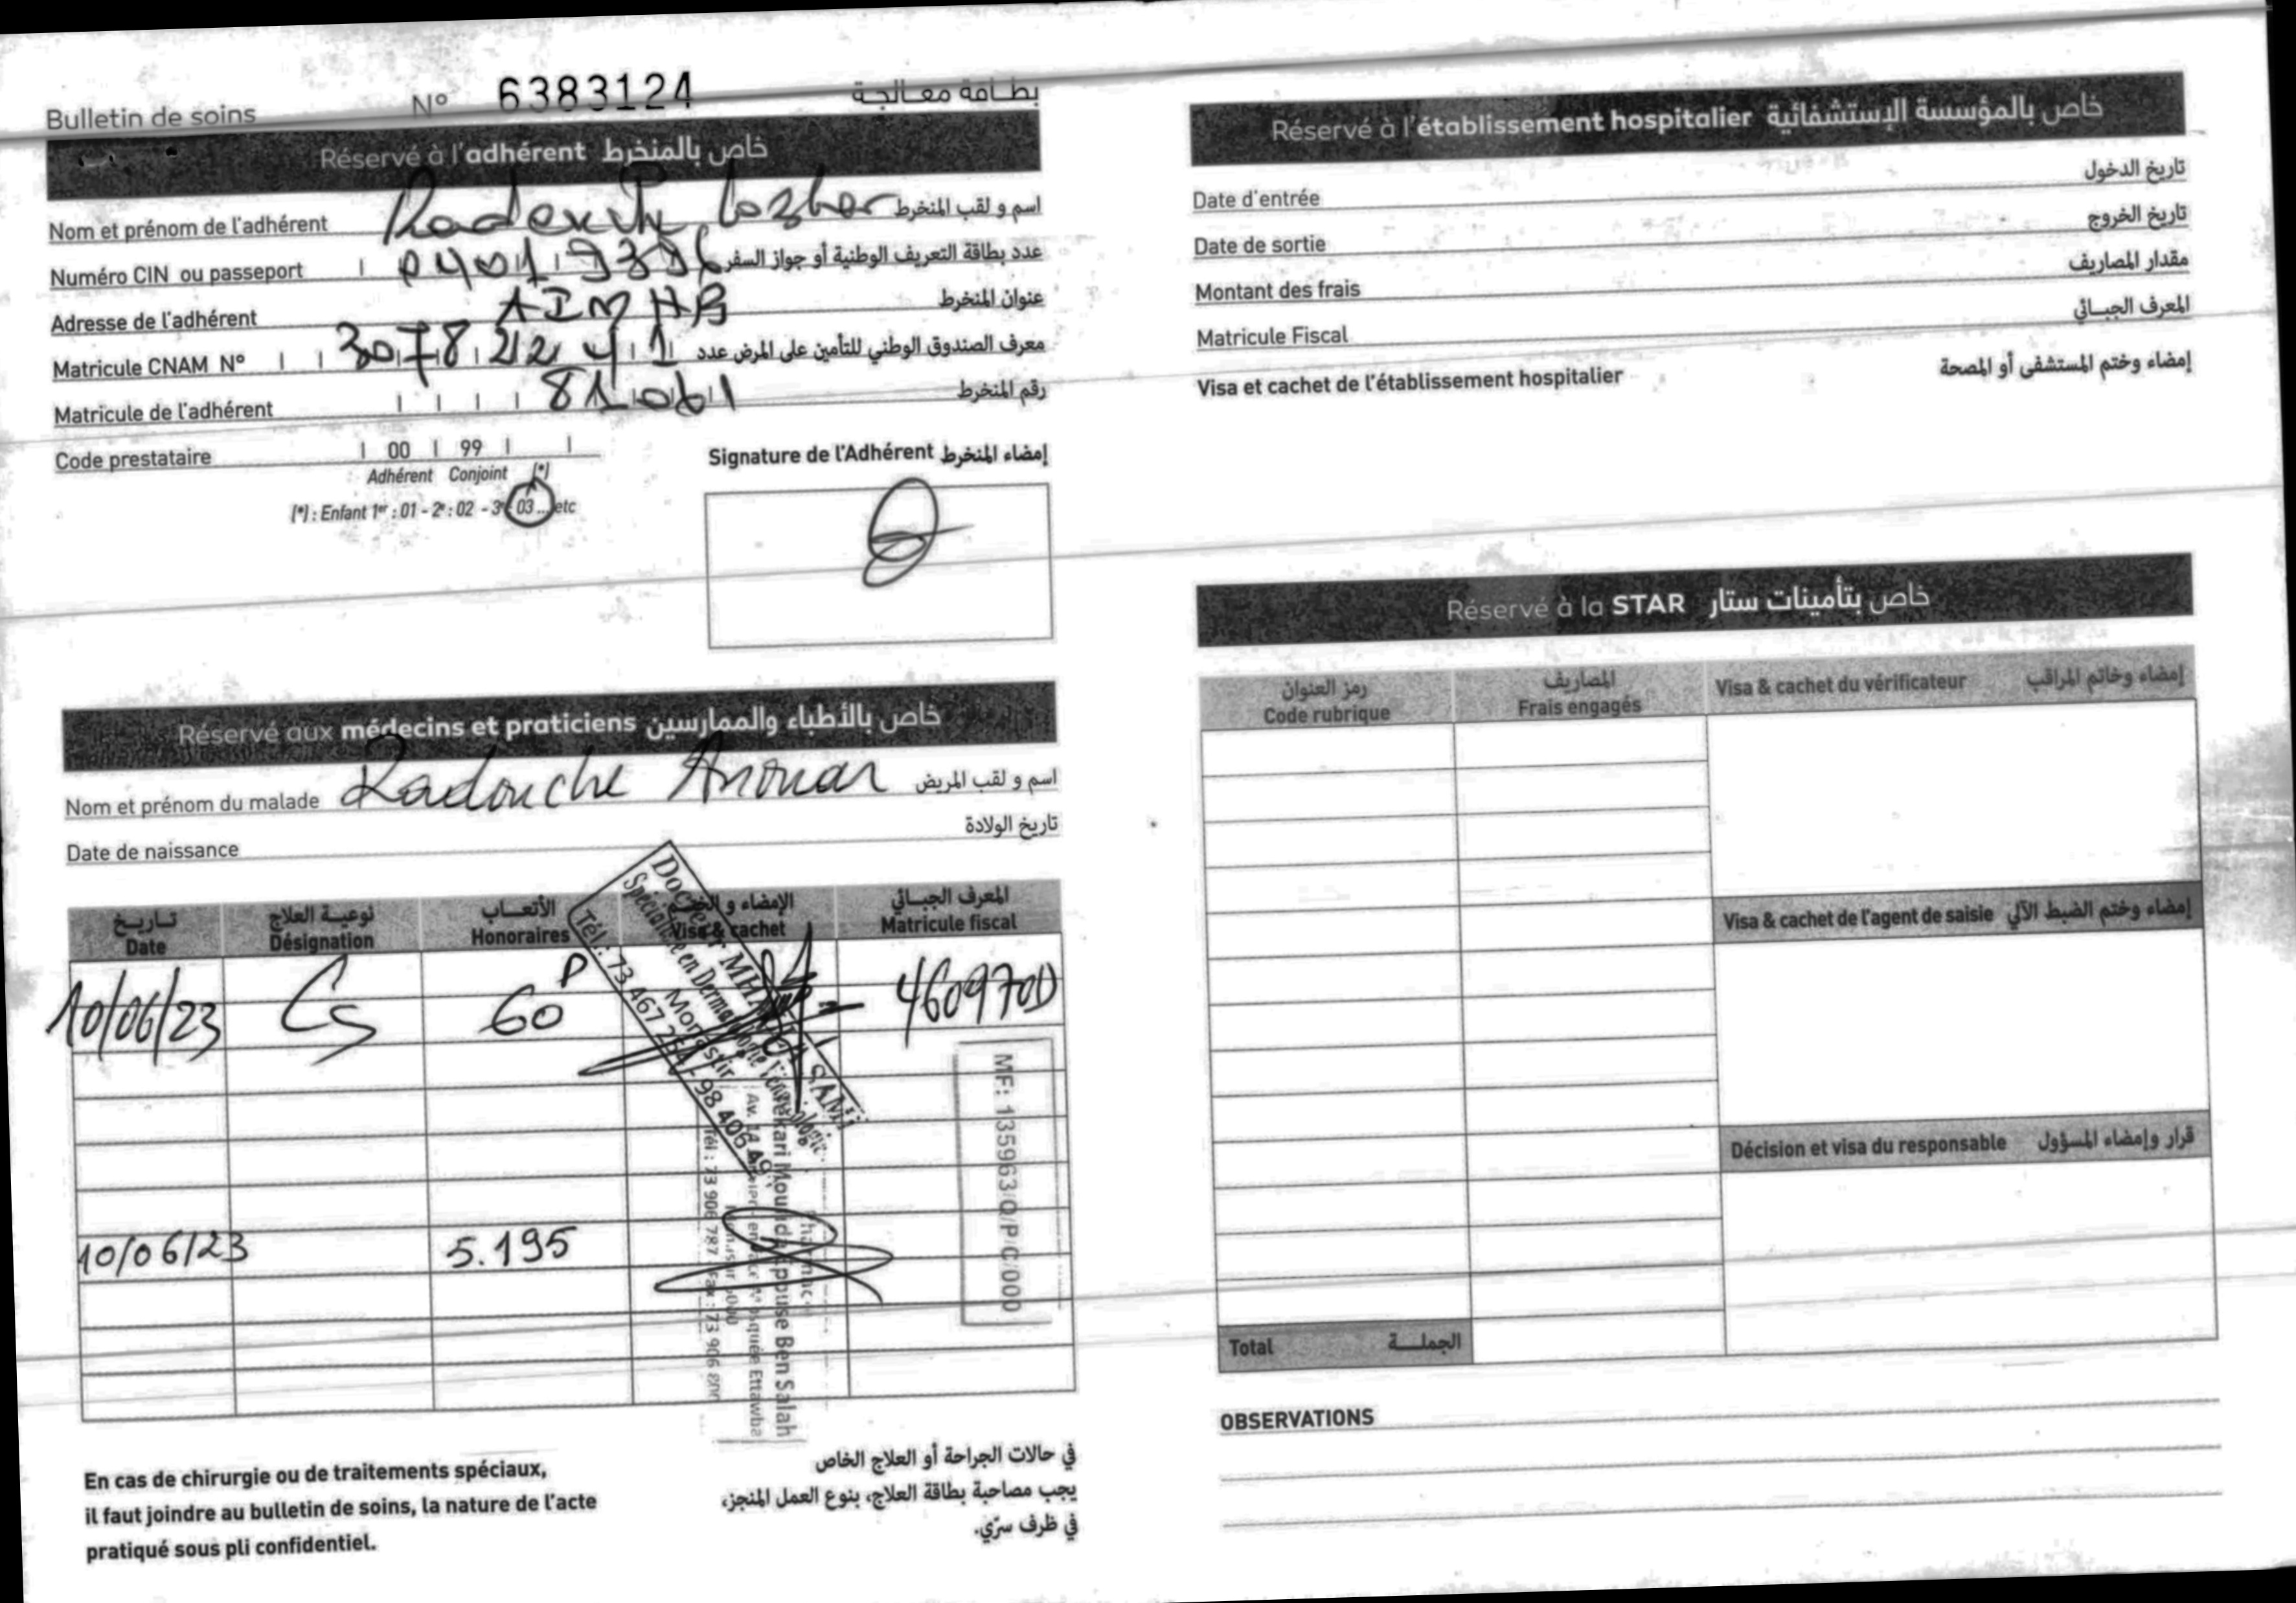 Bulletin de soins N° 6383124 بطاقة معالجة
Réservé à l'adhérent خاص بالمنخرط
Nom et prénom de l'adhérent اسم و لقب المنخرط
Numéro CIN ou passeport عدد بطاقة التعريف الوطنية أو جواز السفر
Adresse de l'adhérent عنوان المنخرط
Matricule CNAM N° 30782241 معرف الصندوق الوطني للتأمين على المرض عدد
Matricule de l'adhérent 81061 رقم المنخرط
Code prestataire 00 99
Adhérent Conjoint (*)
(*) : Enfant 1er : 01 - 2e : 02 - 3e : 03 ... etc
Signature de l'Adhérent إمضاء المنخرط
Réservé aux médecins et praticiens خاص بالأطباء والممارسين
Nom et prénom du malade Radouche Anouar اسم و لقب المريض
Date de naissance تاريخ الولادة
تاريخ نوعية العلاج الأتعاب الإمضاء و الختم المعرف الجبائي
Date Désignation Honoraires Visa & cachet Matricule fiscal
10/06/23 Cs 60 D 460970D
Docteur SAMI
Spécialiste en Dermatologie
Monastir
Tél.: 73 467 254 - 98 406
10/06/23 5.195
MF: 135963/Q/P/C/000
Mekari Mounida Epouse Ben Salah
Mosquée Ettawba
Tél : 73 906 787 Fax : 73 906 800
En cas de chirurgie ou de traitements spéciaux,
il faut joindre au bulletin de soins, la nature de l'acte
pratiqué sous pli confidentiel.
في حالات الجراحة أو العلاج الخاص
يجب مصاحبة بطاقة العلاج، بنوع العمل المنجز،
في ظرف سرّي.
Réservé à l'établissement hospitalier خاص بالمؤسسة الإستشفائية
Date d'entrée تاريخ الدخول
Date de sortie تاريخ الخروج
Montant des frais مقدار المصاريف
Matricule Fiscal المعرف الجبائي
Visa et cachet de l'établissement hospitalier إمضاء وختم المستشفى أو المصحة
Réservé à la STAR خاص بتأمينات ستار
رمز العنوان المصاريف
Code rubrique Frais engagés Visa & cachet du vérificateur إمضاء وخاتم المراقب
Visa & cachet de l'agent de saisie إمضاء وختم الضبط الآلي
Décision et visa du responsable قرار وإمضاء المسؤول
Total الجملة
OBSERVATIONS